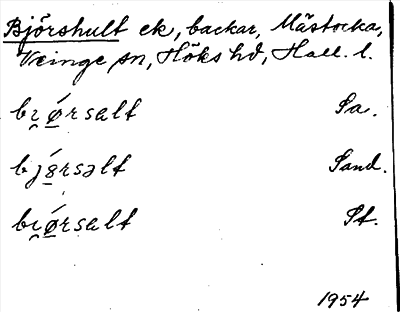 Björshult ek, backar, Mästocka,
Veinge sn, Höks hd, Hall. l.
bi̯ǿrsalt Sa.
bjǿrsalt Sand.
bi̯ǿrsalt St.
1954